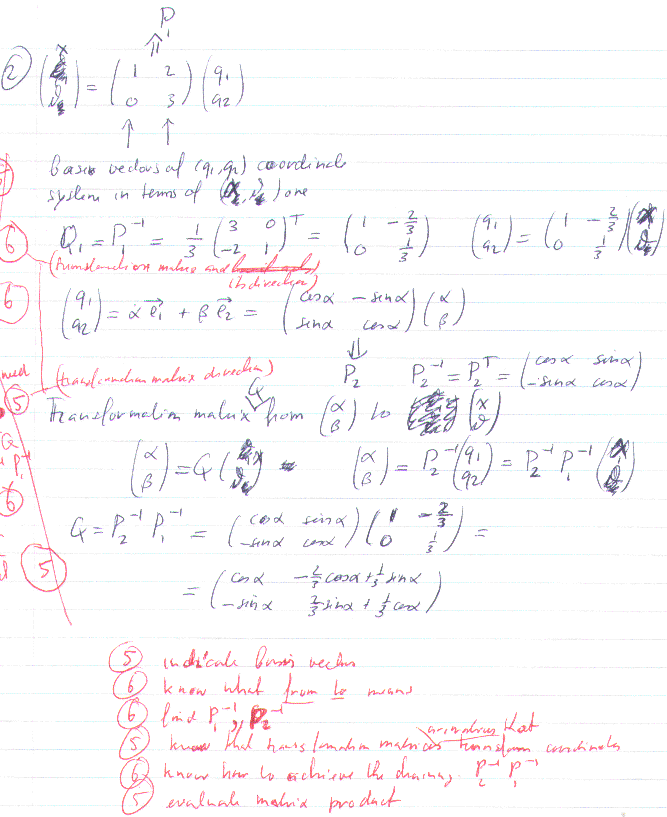 P
⇑ 1
② (x ϑ) = (1 2 / 0 3) (q₁ / q₂)
↑ ↑
basis vectors of (q₁, q₂) coordinate
system in terms of one
Q₁ = P₁⁻¹ = 1/3 (3 0 / -2 1)ᵀ = (1 -2/3 / 0 1/3) (q₁ / q₂) = (1 -2/3 / 0 1/3) (x / ϑ)
⑥ (transformation matrix and direction)
⑥ (q₁ / q₂) = α e₁ + β e₂ = (cosα -sinα / sinα cosα) (α / β)
⇓
⑤ (transformation matrix direction) P₂ P₂⁻¹ = P₂ᵀ = (cosα sinα / -sinα cosα)
Q
Transformation matrix from (α / β) to (x / ϑ)
(α / β) = Q (x / ϑ) (α / β) = P₂⁻¹ (q₁ / q₂) = P₂⁻¹ P₁⁻¹ (x / ϑ)
Q = P₂⁻¹ P₁⁻¹ = (cosα sinα / -sinα cosα) (1 -2/3 / 0 1/3) =
⑤ = (cosα -2/3 cosα + 1/3 sinα / -sinα 2/3 sinα + 1/3 cosα)
⑤ indicate basis vectors
⑥ know what from to means
⑥ find P₁⁻¹, P₂⁻¹
⑤ know that transformation matrices transform coordinates
⑥ know how to achieve the chaining P₂⁻¹ P₁⁻¹
⑤ evaluate matrix product